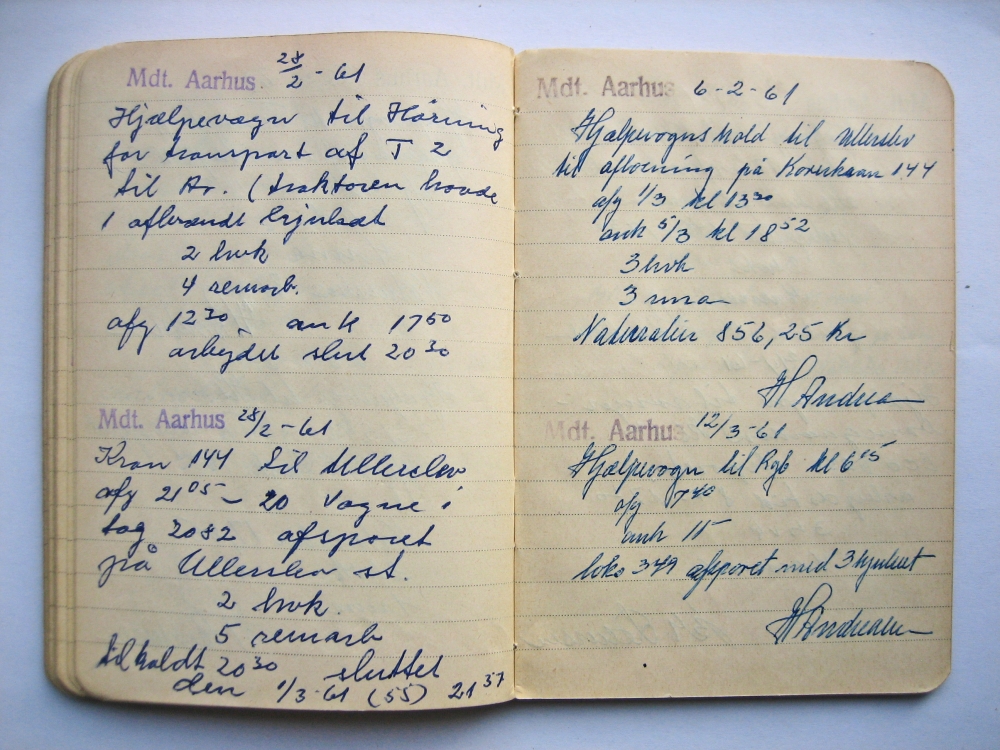 Mdt. Aarhus 28/2 - 61
Hjælpevogn til Hørning
for transport af T 2
til Ar. (traktoren havde
1 afbrændt hjulsæt
2 hvk
4 remarb.
afg 12 30 ank 17 50
arbejdet slut 20 30
Mdt. Aarhus 28/2 - 61
Kran 144 til Ullerslev
afg 21 05 - 20 Vogne i
tog 2082 afsporet
på Ullerslev st.
2 hvk.
5 remarb
tilkaldt 20 30 sluttet
den 1/3-61 (55) 21 37
Mdt. Aarhus 6-2-61
Hjælpevognshold til Ullerslev
til afløsning på 144
afg 1/3 kl 13 30
ank 5/3 kl 18 52
3 hvk
3 rma
Naturalier 856,25 Kr
H Andrea
Mdt. Aarhus 12/3-61
Hjælpevogn til Rgb kl 6 15
afg 7 40
ank 11
loko 349 afsporet med 3 hjulsæt
H Andreasen